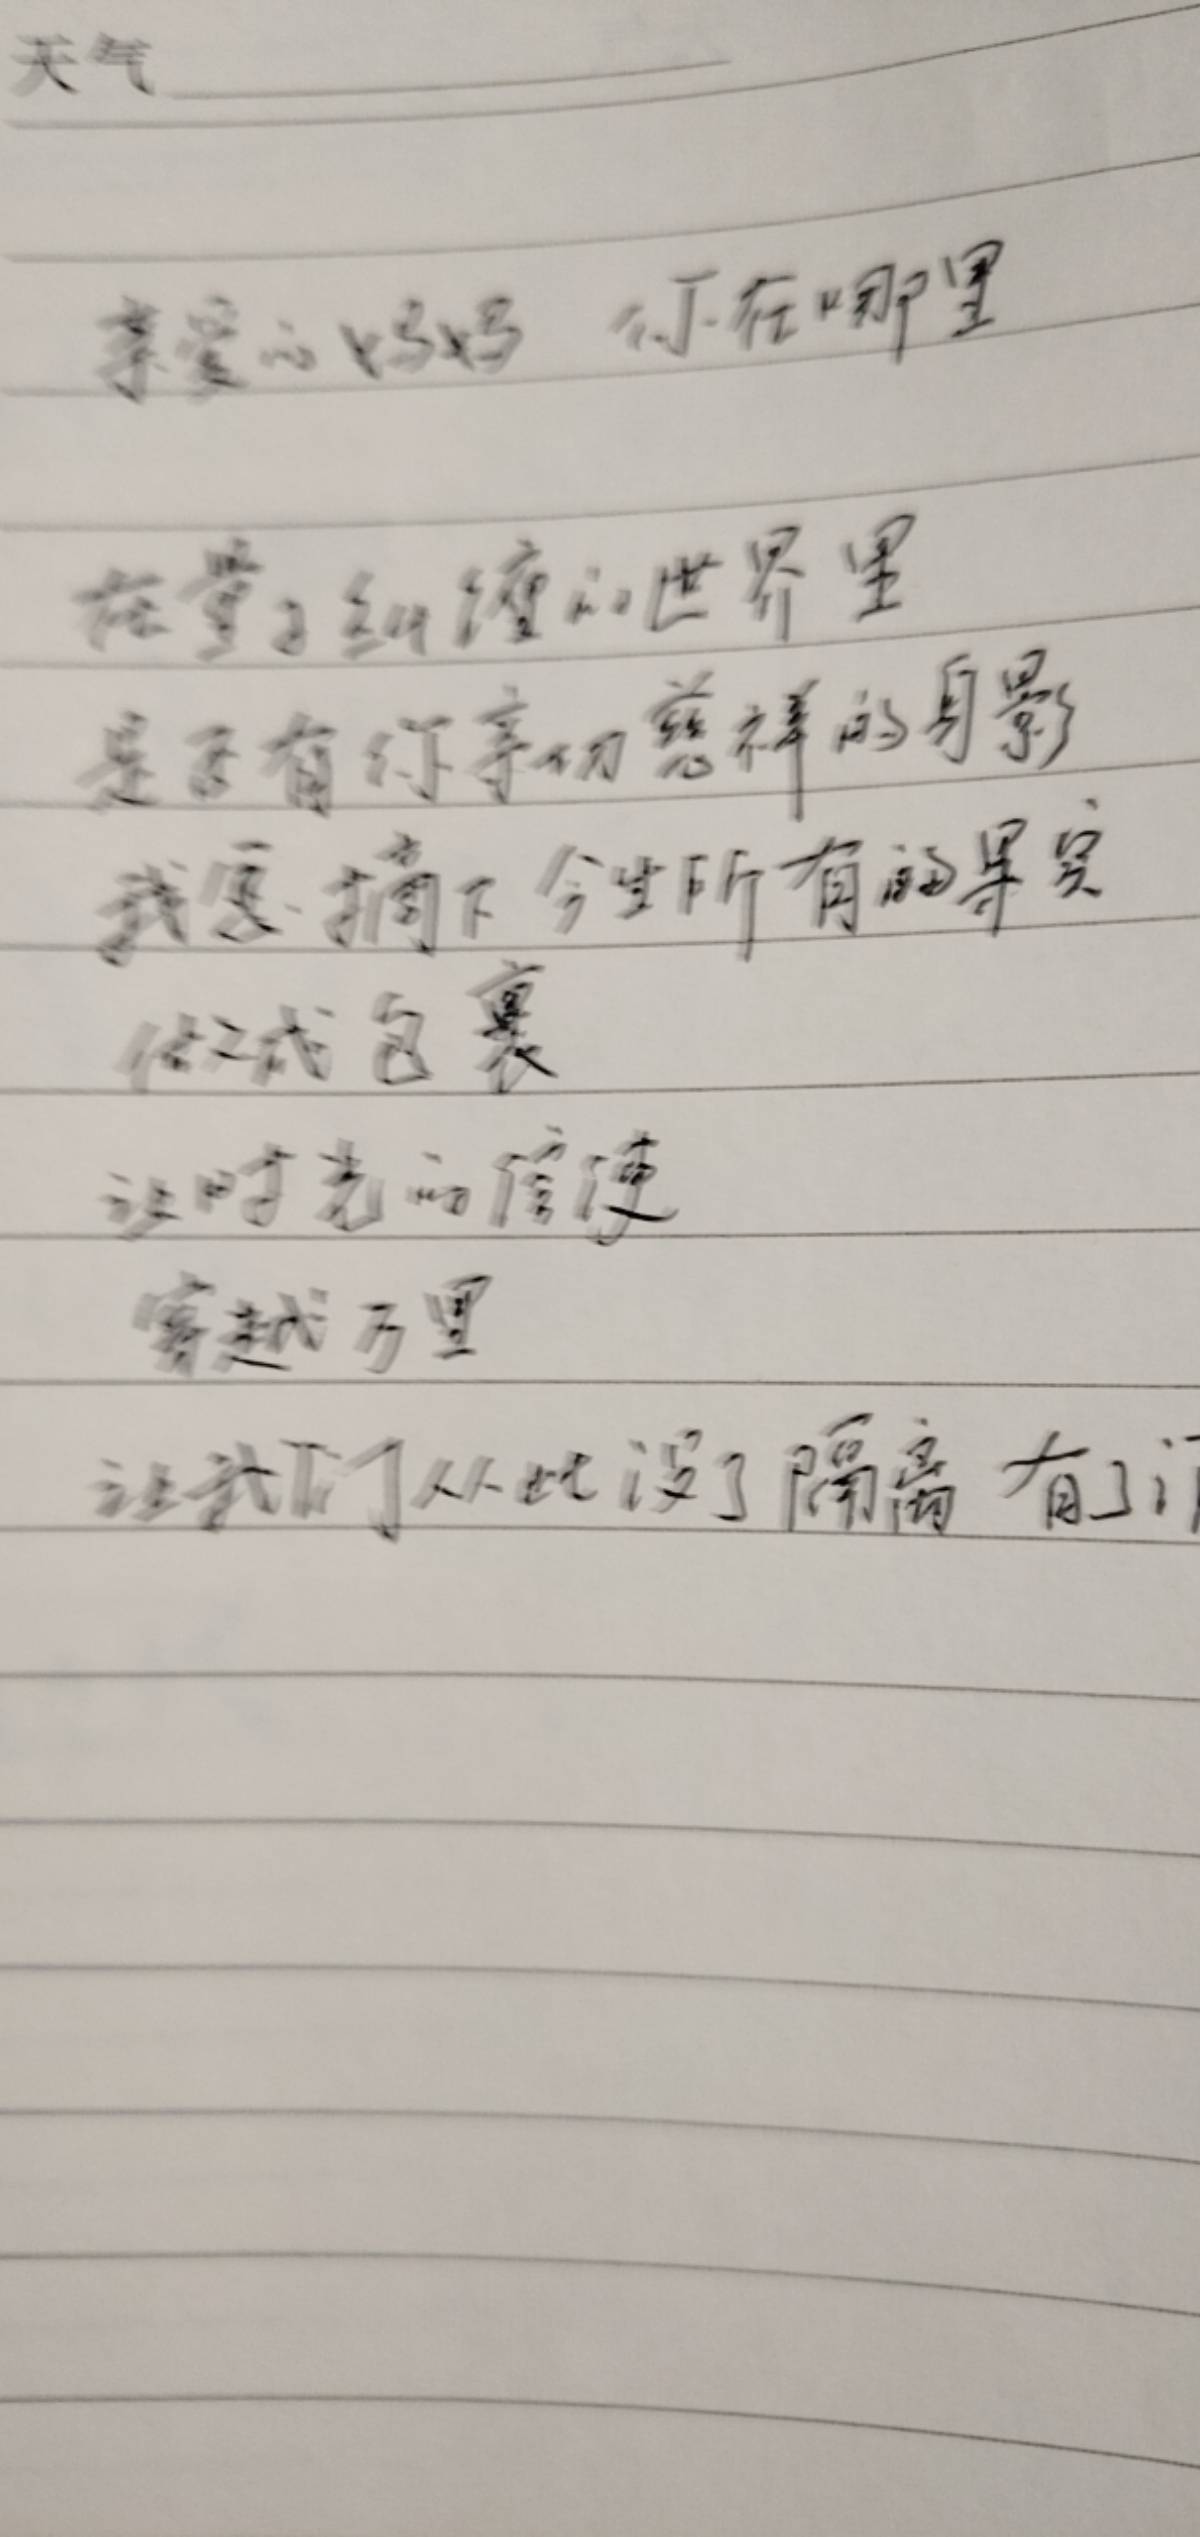 天气
亲爱的妈妈 你在哪里
在量子纠缠的世界里
是否有你亲切慈祥的身影
我要摘下今生所有的果实
做成包裹
让时光的信使
穿越万里
让我们从此没了隔离 有了